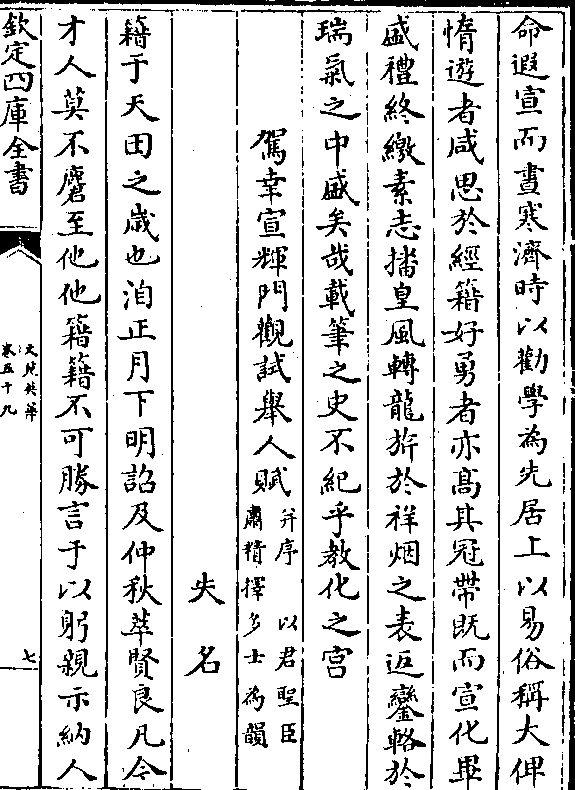 命遐宣而晝寒濟時以勸學為先居上以易俗稱大俾
惰遊者咸思於經籍好勇者亦髙其冠帶既而宣化畢
盛禮終繳素志播皇風轉龍旂於祥烟之表返鑾輅於
瑞氣之中盛矣哉載筆之史不紀乎教化之宫
駕幸宣輝門觀試舉人賦并序 以君聖臣
肅精擇多士為韻
失名
籍于天田之歳也洎正月下明詔及仲秋萃賢良凡今
才人莫不麏至他他籍籍不可勝言于以躬親示納人
欽定四庫全書
文苑英華
卷五十九
七